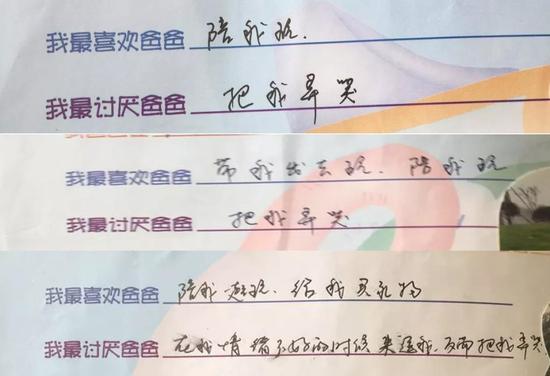 我最喜欢爸爸 陪我玩.
我最讨厌爸爸 把我弄哭
我最喜欢爸爸 带我出去玩. 陪我玩
我最讨厌爸爸 把我弄哭
我最喜欢爸爸 陪我 玩. 给我买礼物
我最讨厌爸爸 在我情绪不好的时候来逗我.反而把我弄哭